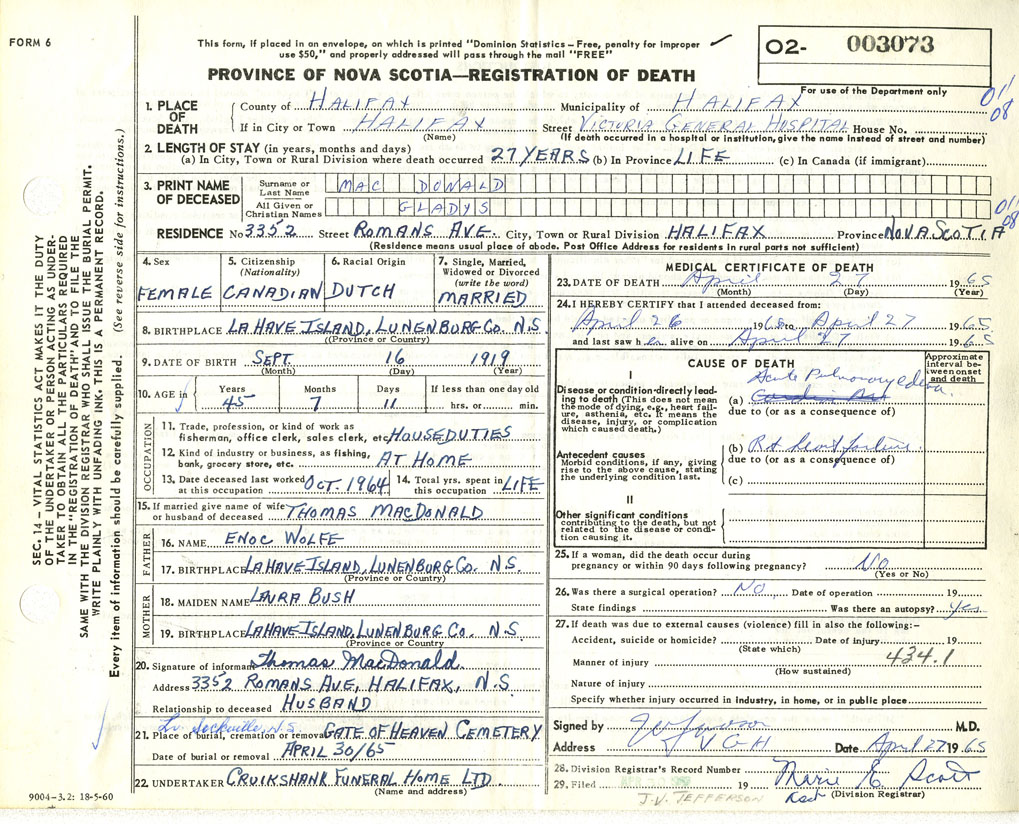 FORM 6
This form, if placed in an envelope, on which is printed "Dominion Statistics – Free, penalty for improper
use $50," and properly addressed will pass through the mail "FREE"
O2- 003073
For use of the Department only
PROVINCE OF NOVA SCOTIA—REGISTRATION OF DEATH
01
08
1. PLACE OF DEATH
County of HALIFAX Municipality of HALIFAX
If in City or Town HALIFAX Street VICTORIA GENERAL HOSPITAL House No.
(Name) (If death occurred in a hospital or institution, give the name instead of street and number)
2. LENGTH OF STAY (in years, months and days)
(a) In City, Town or Rural Division where death occurred 27 YEARS (b) In Province LIFE (c) In Canada (if immigrant)
3. PRINT NAME OF DECEASED
Surname or Last Name MAC DONALD
All Given or Christian Names GLADYS
01
08
RESIDENCE No 3352 Street ROMANS AVE. City, Town or Rural Division HALIFAX Province NOVA SCOTIA
(Residence means usual place of abode. Post Office Address for residents in rural parts not sufficient)
4. Sex
FEMALE
5. Citizenship (Nationality)
CANADIAN
6. Racial Origin
DUTCH
7. Single, Married, Widowed or Divorced (write the word)
MARRIED
8. BIRTHPLACE LA HAVE ISLAND, LUNENBURG CO. N.S.
(Province or Country)
9. DATE OF BIRTH SEPT. 16 1919
(Month) (Day) (Year)
10. AGE in Years 45 Months 7 Days 11 If less than one day old hrs. or min.
OCCUPATION
11. Trade, profession, or kind of work as
fisherman, office clerk, sales clerk, etc. HOUSEDUTIES
12. Kind of industry or business, as fishing,
bank, grocery store, etc. AT HOME
13. Date deceased last worked at this occupation OCT. 1964 14. Total yrs. spent in this occupation LIFE
15. If married give name of wife
or husband of deceased THOMAS MACDONALD
FATHER
16. NAME ENOC WOLFE
17. BIRTHPLACE LA HAVE ISLAND, LUNENBURG CO. N.S.
(Province or Country)
MOTHER
18. MAIDEN NAME LAURA BUSH
19. BIRTHPLACE LA HAVE ISLAND, LUNENBURG CO. N.S.
(Province or Country)
20. Signature of informant Thomas MacDonald
Address 3352 ROMANS AVE, HALIFAX, N.S.
Relationship to deceased HUSBAND
Lr. Sackville, N.S.
21. Place of burial, cremation or removal GATE OF HEAVEN CEMETERY
Date of burial or removal APRIL 30/65
22. UNDERTAKER CRUIKSHANK FUNERAL HOME LTD.
(Name and address)
MEDICAL CERTIFICATE OF DEATH
23. DATE OF DEATH April 27 1965
(Month) (Day) (Year)
24. I HEREBY CERTIFY that I attended deceased from:
April 26 1965 to April 27 1965
and last saw her alive on April 27 1965
CAUSE OF DEATH
Approximate interval between onset and death
I
Disease or condition directly leading to death (This does not mean the mode of dying, e.g., heart failure, asthenia, etc. It means the disease, injury, or complication which caused death.)
Acute Pulmonary edema.
(a)
due to (or as a consequence of)
Antecedent causes
Morbid conditions, if any, giving rise to the above cause, stating the underlying condition last.
(b) Rt heart failure
due to (or as a consequence of)
(c)
II
Other significant conditions
contributing to the death, but not related to the disease or condition causing it.
25. If a woman, did the death occur during
pregnancy or within 90 days following pregnancy? No
(Yes or No)
26. Was there a surgical operation? No Date of operation 19
State findings Was there an autopsy? Yes
27. If death was due to external causes (violence) fill in also the following:–
Accident, suicide or homicide? Date of injury 19
(State which)
434.1
Manner of injury
(How sustained)
Nature of injury
Specify whether injury occurred in industry, in home, or in public place
Signed by M.D.
Address VGH Date April 27 1965
28. Division Registrar's Record Number
29. Filed 19 Marie E. Scott
(Division Registrar)
J.V. JEFFERSON
SEC. 14 – VITAL STATISTICS ACT MAKES IT THE DUTY
OF THE UNDERTAKER OR PERSON ACTING AS UNDER-
TAKER TO OBTAIN ALL THE PARTICULARS REQUIRED
IN THE "REGISTRATION OF DEATH" AND TO FILE THE
SAME WITH THE DIVISION REGISTRAR WHO SHALL ISSUE THE BURIAL PERMIT.
WRITE PLAINLY WITH UNFADING INK. THIS IS A PERMANENT RECORD.
Every item of information should be carefully supplied. (See reverse side for instructions.)
9004-3.2: 18-5-60